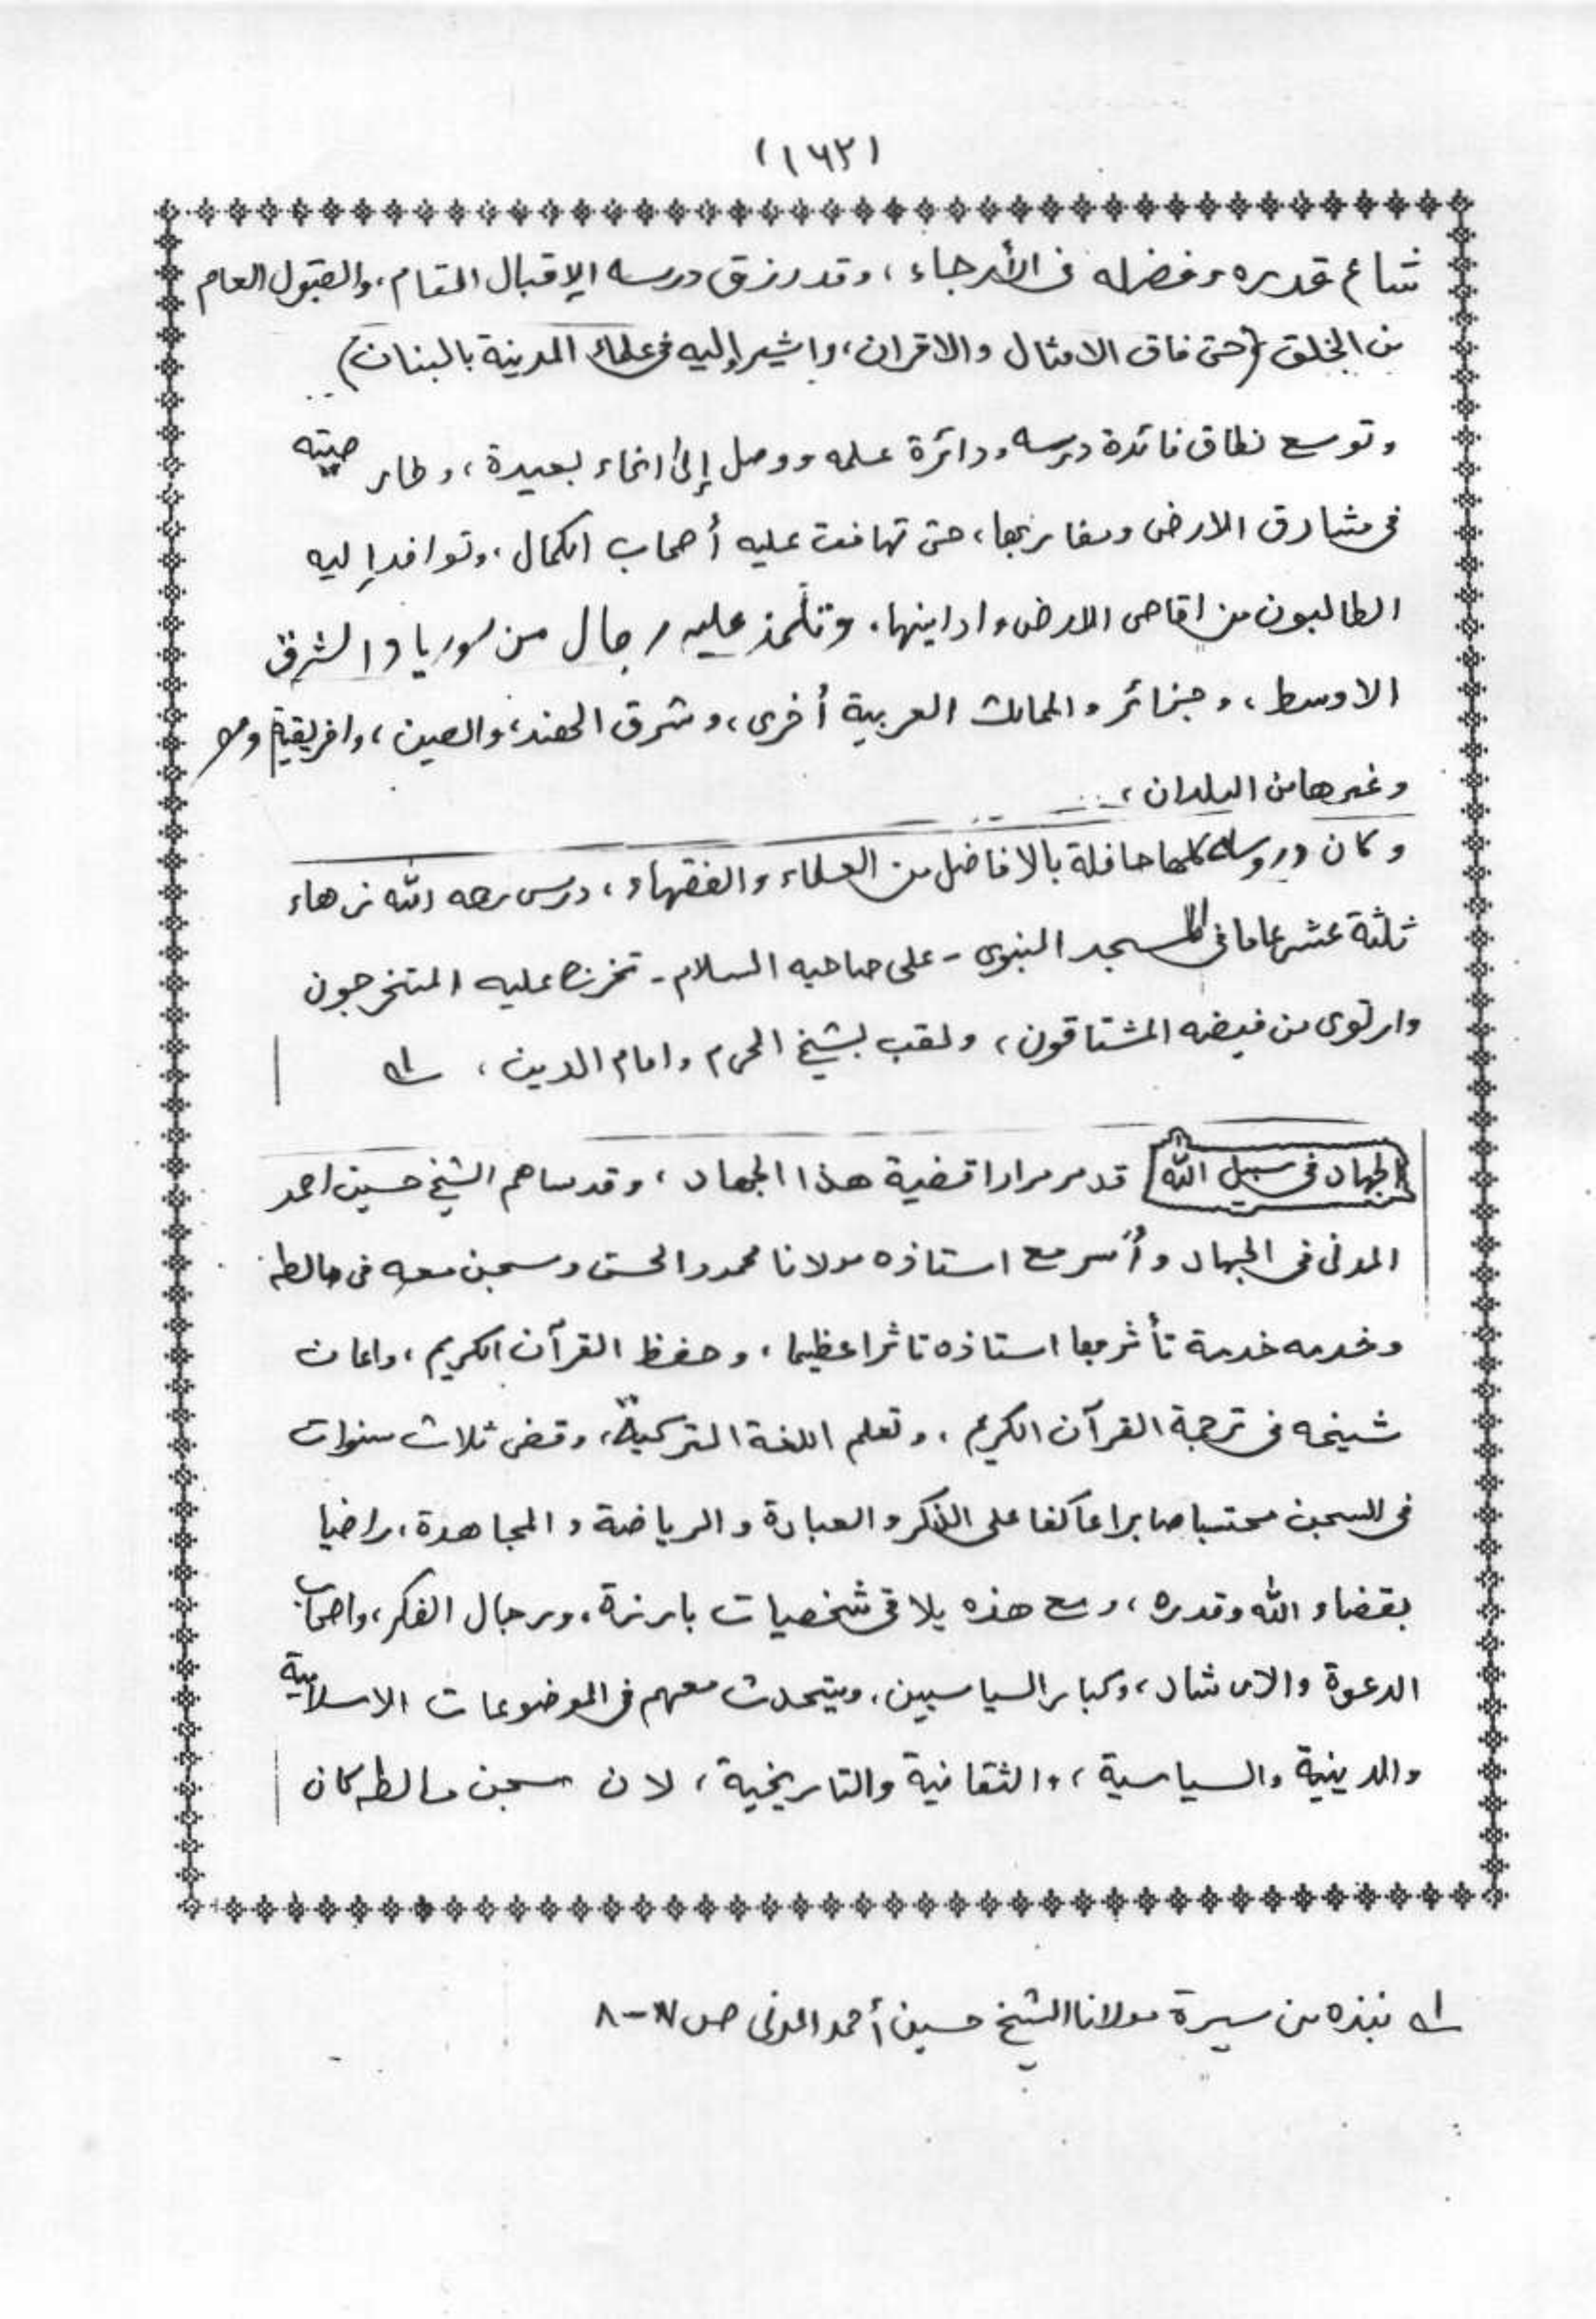 (١٦٢)
شاع قدره وفضله فى الأرجاء، وقد رزق درسه الإقبال التام، والقبول العام
من الخلق (حتى فاق الامثال والاقران، واشير إليه فى علماء المدينة بالبنان)
وتوسع نطاق فائدة درسه ودائرة علمه ووصل إلى انحاء بعيدة، وطار صيته
فى مشارق الارض ومغاربها، حتى تهافت عليه أصحاب الكمال، وتوافد إليه
الطالبون من اقاصى الارض وادانيها، وتلمذ عليه رجال من سوريا والشرق
الاوسط، وجزائر والممالك العربية أخرى، وشرق الهند، والصين، وافريقية
وغيرها من البلدان،
وكان دروسه كلها حافلة بالافاضل من العلماء والفقهاء، درس رحمه الله زهاء
ثلثة عشر عاما فى المسجد النبوى - على صاحبه السلام - تخرج عليه المتخرجون
وارتوى من فيضه المشتاقون، ولقب بشيخ الحرم وامام الدين، ١ـه
الجهاد فى سبيل الله قد مر مرارا قضية هذا الجهاد، وقد ساهم الشيخ حسين احمد
المدنى فى الجهاد وأُسر مع استاذه مولانا محمود الحسن وسجن معه فى مالطه
وخدمه خدمة تأثر بها استاذه تاثرا عظيما، وحفظ القرآن الكريم، واعان
شيخه فى ترجمة القرآن الكريم، وتعلم اللغة التركية، وقضى ثلاث سنوات
فى السجن محتسبا صابرا عاكفا على الذكر والعبادة والرياضة والمجاهدة، راضيا
بقضاء الله وقدره، ومع هذه يلاقى شخصيات بارزة، ورجال الفكر، واصحاب
الدعوة والارشاد، وكبار السياسيين، ويتحدث معهم فى الموضوعات الاسلامية
والدينية والسياسية، والثقافية والتاريخية، لان سجن مالطه كان
١ـه نبذه من سيرة مولانا الشيخ حسين أحمد المدنى ص ٧-٨